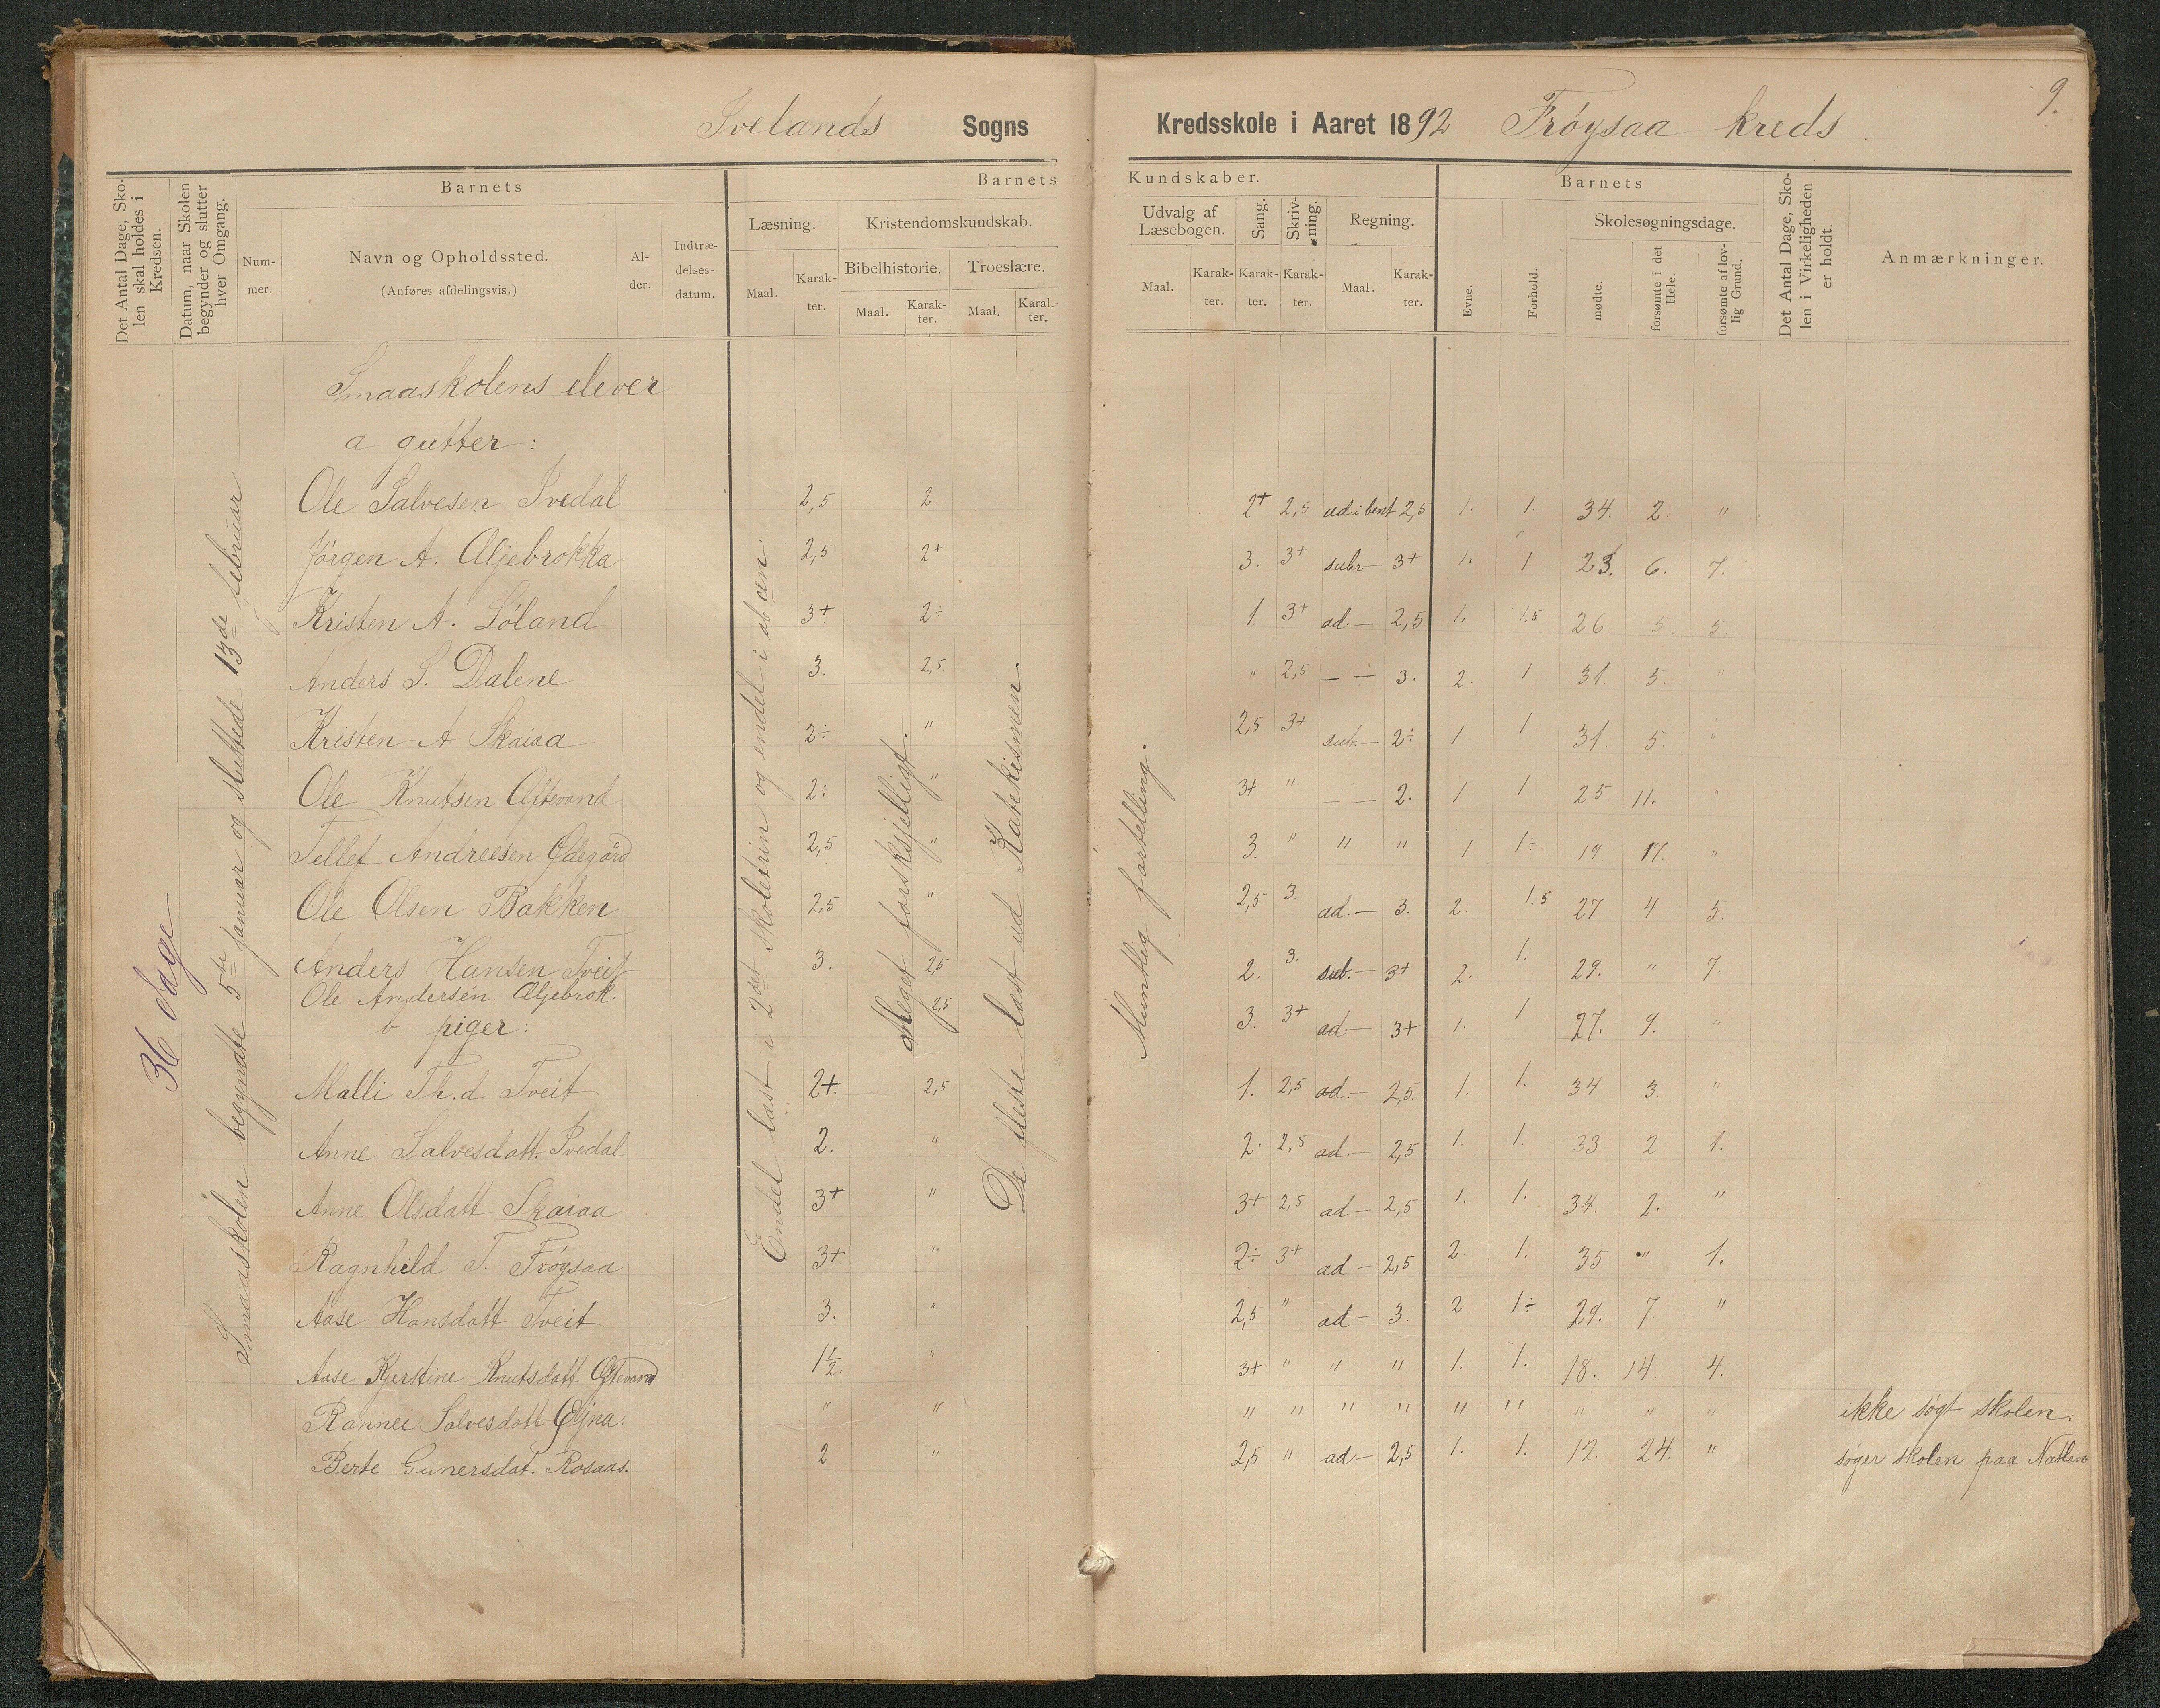 Ivelands Sogns Kredsskole i Aaret 1892 Frøysaa kreds
9.
Det Antal Dage, Skolen skal holdes i Kredsen.
Datum, naar Skolen begynder og slutter hver Omgang.
Barnets
Num-mer.
Navn og Opholdssted.
(Anføres afdelingsvis.)
Al-der.
Indtræ-delses-datum.
Barnets Kundskaber.
Læsning.
Maal. Karak-ter.
Kristendomskundskab.
Bibelhistorie. Troeslære.
Maal. Karak-ter. Maal. Karak-ter.
Udvalg af Læsebogen.
Maal. Karak-ter.
Sang. Karak-ter.
Skriv-ning. Karak-ter.
Regning.
Maal. Karak-ter.
Barnets
Evne. Forhold.
Skolesøgningsdage.
mødte. forsømte i det Hele. forsømte af lov-lig Grund.
Det Antal Dage, Sko-len i Virkeligheden er holdt.
Anmærkninger.
36 dage
Smaaskolen begyndte 5te januar og sluttede 13de februar
Endel læst i 2det skoletrin og endel i abcen.
Meget forskjelligt.
De fleste læst ud Katekismen.
Mundtlig fortelling.
Smaaskolens elever
a gutter:
Ole Salvesen Ivedal 2,5 2 2+ 2,5 ad. i bent 2,5 1. 1. 34. 2. "
Jörgen A. Æljebrokka 2,5 2+ 3. 3+ subr — 3+ 1. 1 23. 6. 7.
Kristen A. Løland 3+ 2÷ 1. 3+ ad. — 2,5 1. 1.5 26 5. 5.
Anders S. Dalene 3. 2,5 " 2,5 — — 3. 2. 1 31. 5. "
Kristen A Skaiaa 2÷ " 2,5 3+ sub. — 2÷ 1 1 31 5. "
Ole Knutsen Oftevand 2÷ " 3+ " — — 2. 1 1 25 11. "
Tellef Andreesen Ødegård 2,5 " 3. " " " 1 1÷ 19 17. "
Ole Olsen Bakken 2,5 " 2,5 3. ad. — 3. 2. 1.5 27 4 5.
Anders Hansen Tveit 3. 2,5 2. 3. sub. — 3+ 2. 1. 29. " 7.
Ole Andersen. Æljebrok. 2,5 3. 3+ ad — 3+ 1. 1 27. 9. "
b piger:
Malli Th.d Tveit 2+. 2,5 1. 2,5 ad. — 2,5. 1. 1. 34 3. "
Anne Salvesdatt. Ivedal 2. " 2. 2,5 ad. — 2,5 1. 1. 33 2 1.
Anne Olsdatt Skaiaa 3+ " 3+ 2,5 ad — 2,5 1. 1. 34. 2. "
Ragnhild T. Frøysaa 3+ " 2÷ 3+ ad — 2,5 2. 1. 35 " 1.
Aase Hansdatt Tveit 3. " 2,5 " ad — 3. 2. 1÷ 29. 7. "
Aase Kjerstine Knutsdatt Oftevand 1½. " 3+ " " " 1. 1. 18. 14. 4.
Rannei Salvesdatt " " " " " " " " " " " ikke søgt skolen.
Berte Gunersdat. Rosaas. 2 " 2,5 " ad — 2,5 1. 1. 12. 24. " søger skolen paa